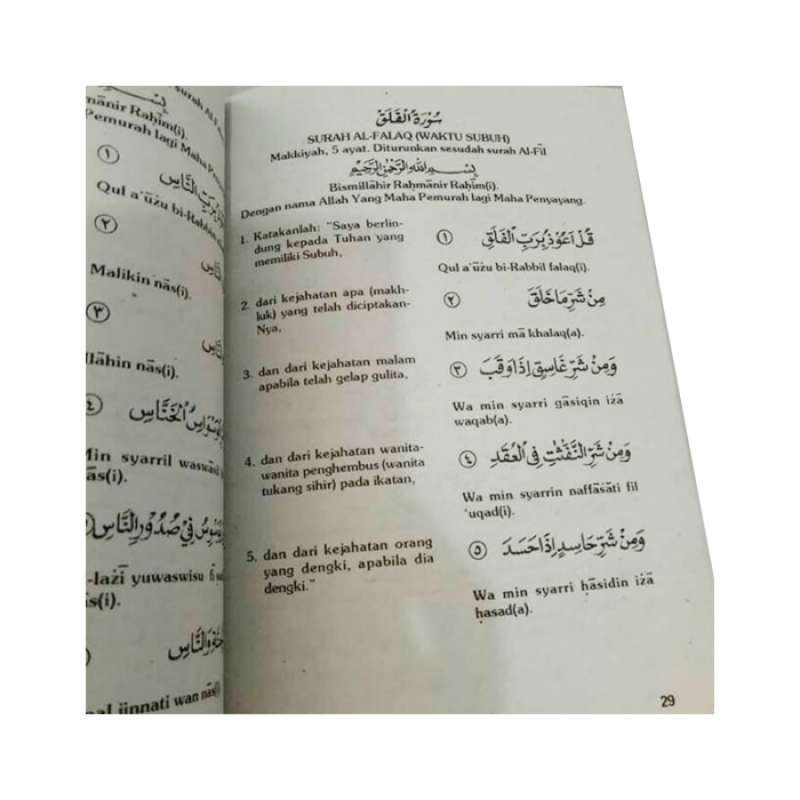 بِسْمِ
سورة Al-F
mānir Raḥīm(i).
Pemurah lagi Maha Pe
١
بِرَبِّ النَّاسِ
Qul a'ūżu bi-Rabbin
٢
Malikin nās(i).
٣
llāhin nās(i).
٤
الْوَسْوَاسِ الْخَنَّاسِ
Min syarril waswās
ās(i).
يُوَسْوِسُ فِي صُدُورِ النَّاسِ
-lażī yuwaswisu fī
ās(i).
وَالنَّاسِ
jinnati wan nās(i
سُورَةُ الْفَلَقِ
SURAH AL-FALAQ (WAKTU SUBUH)
Makkiyah, 5 ayat. Diturunkan sesudah surah Al-Fīl
بِسْمِ اللهِ الرَّحْمٰنِ الرَّحِيْمِ
Bismillāhir Raḥmānir Raḥīm(i).
Dengan nama Allah Yang Maha Pemurah lagi Maha Penyayang.
1. Katakanlah: "Saya berlin-
dung kepada Tuhan yang
memiliki Subuh,
قُلْ اَعُوْذُ بِرَبِّ الْفَلَقِ ١
Qul a'ūżu bi-Rabbil falaq(i).
2. dari kejahatan apa (makh-
luk) yang telah diciptakan-
Nya,
مِنْ شَرِّ مَا خَلَقَ ٢
Min syarri mā khalaq(a).
3. dan dari kejahatan malam
apabila telah gelap gulita,
وَمِنْ شَرِّ غَاسِقٍ اِذَا وَقَبَ ٣
Wa min syarri gāsiqin iżā
waqab(a).
4. dan dari kejahatan wanita-
wanita penghembus (wanita
tukang sihir) pada ikatan,
وَمِنْ شَرِّ النَّفّٰثٰتِ فِى الْعُقَدِ ٤
Wa min syarrin naffāsāti fil
'uqad(i).
5. dan dari kejahatan orang
yang dengki, apabila dia
dengki."
وَمِنْ شَرِّ حَاسِدٍ اِذَا حَسَدَ ٥
Wa min syarri ḥāsidin iżā
ḥasad(a).
29